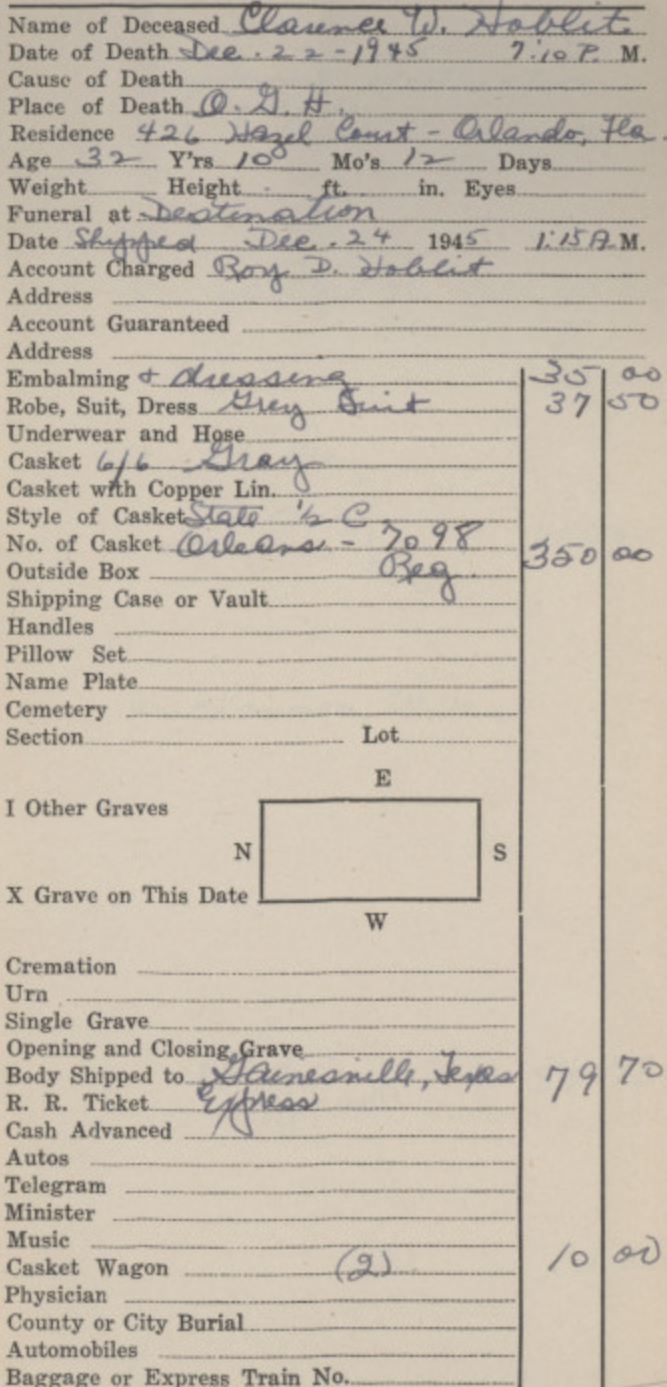 Name of Deceased Clarence W. Hoblit
Date of Death Dec. 22-1945 7:10 P. M.
Cause of Death
Place of Death O. G. H.
Residence 426 Hazel Court - Orlando, Fla.
Age 32 Y'rs 10 Mo's 12 Days
Weight Height ft. in. Eyes
Funeral at Destination
Date Shipped Dec. 24 1945 1:15 A. M.
Account Charged Roy D. Hoblit
Address
Account Guaranteed
Address
Embalming & dressing 35 00
Robe, Suit, Dress Grey Suit 37 50
Underwear and Hose
Casket 6/6 Gray
Casket with Copper Lin.
Style of Casket State ½ C
No. of Casket Orleans - 7098 350 00
Outside Box Reg.
Shipping Case or Vault
Handles
Pillow Set
Name Plate
Cemetery
Section Lot
E
I Other Graves
N S
X Grave on This Date
W
Cremation
Urn
Single Grave
Opening and Closing Grave
Body Shipped to Gainesville, Texas 79 70
R. R. Ticket Express
Cash Advanced
Autos
Telegram
Minister
Music
Casket Wagon (2) 10 00
Physician
County or City Burial
Automobiles
Baggage or Express Train No.